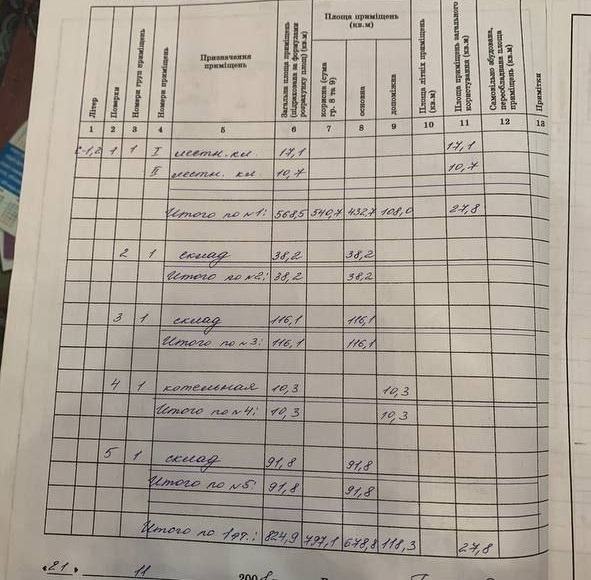 Літер
Поверхи
Номери груп приміщень
Номери приміщень
Призначення
приміщень
Загальна площа приміщень
(підрахована за формулами
розрахунку площі) (кв.м)
Площа приміщень
(кв.м)
корисна (сума
гр. 8 та 9)
основна
допоміжна
Площа літніх приміщень
(кв.м)
Площа приміщень загального
користування (кв.м)
Самовільно збудована,
переобладнана площа
приміщень (кв.м)
Примітки
1 2 3 4 5 6 7 8 9 10 11 12 13
1 1 I лестн. кл. 17,1 17,1
II лестн. кл. 10,7 10,7
Итого по №1: 568,5 540,7 432,7 108,0 27,8
2 1 склад 38,2 38,2
Итого по №2: 38,2 38,2
3 1 склад 116,1 116,1
Итого по №3: 116,1 116,1
4 1 котельная 10,3 10,3
Итого по №4: 10,3 10,3
5 1 склад 91,8 91,8
Итого по №5: 91,8 91,8
Итого по 1эт.: 824,9 797,1 678,8 118,3 27,8
"21" 11 200